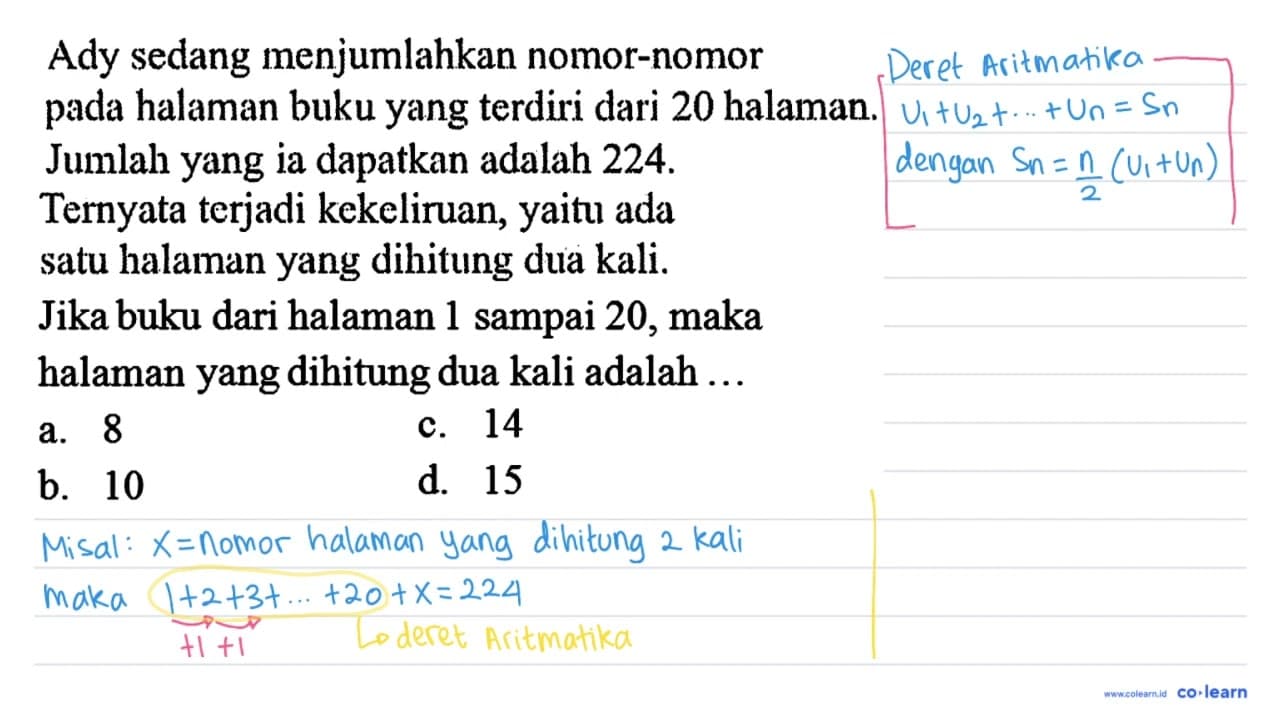 Ady sedang menjumlahkan nomor-nomor
pada halaman buku yang terdiri dari 20 halaman.
Jumlah yang ia dapatkan adalah 224.
Ternyata terjadi kekeliruan, yaitu ada
satu halaman yang dihitung dua kali.
Jika buku dari halaman 1 sampai 20, maka
halaman yang dihitung dua kali adalah ...
a. 8
b. 10
c. 14
d. 15
Deret Aritmatika
U₁+U₂+...+Un = Sn
dengan Sn = n/2 (U₁+Un)
Misal: x=nomor halaman yang dihitung 2 kali
maka 1+2+3+...+20+x=224
+1 +1
deret Aritmatika
www.colearn.id co·learn